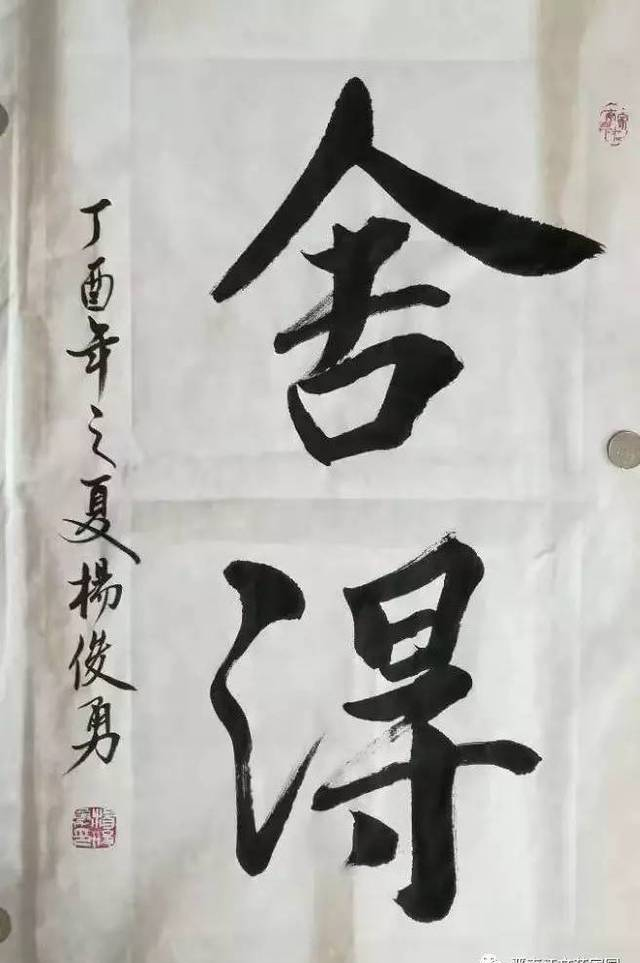 舍得
丁酉年之夏楊俊勇